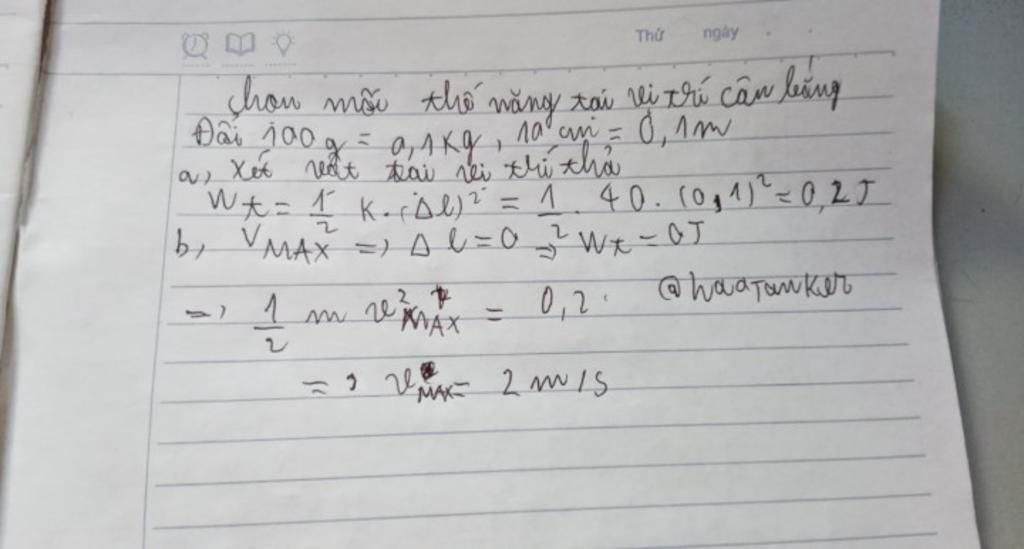 Thứ ngày
Chọn mốc thế năng tại vị trí cân bằng
Đổi 100g = 0,1Kg, 10 cm = 0,1m
a, Xét vật tại vị trí thả
Wt = 1/2 K.(Δl)² = 1/2 . 40. (0,1)² = 0,2J
b, VMAX => Δl = 0 => Wt = 0J
=> 1/2 m v²MAX = 0,2. @haaTanker
=> vMAX = 2m/s